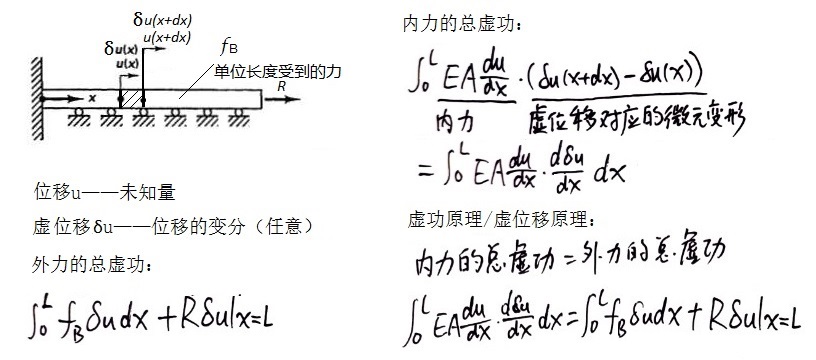 δu(x+dx)
u(x+dx)
δu(x)
u(x)
f_B
单位长度受到的力
R
x
位移u——未知量
虚位移δu——位移的变分（任意）
外力的总虚功：
∫₀ᴸ f_B δu dx + Rδu|x=L
内力的总虚功：
∫₀ᴸ EA du/dx · (δu(x+dx) - δu(x))
内力 虚位移对应的微元变形
= ∫₀ᴸ EA du/dx · dδu/dx dx
虚功原理/虚位移原理：
内力的总虚功=外力的总虚功
∫₀ᴸ EA du/dx · dδu/dx dx = ∫₀ᴸ f_B δu dx + Rδu|x=L